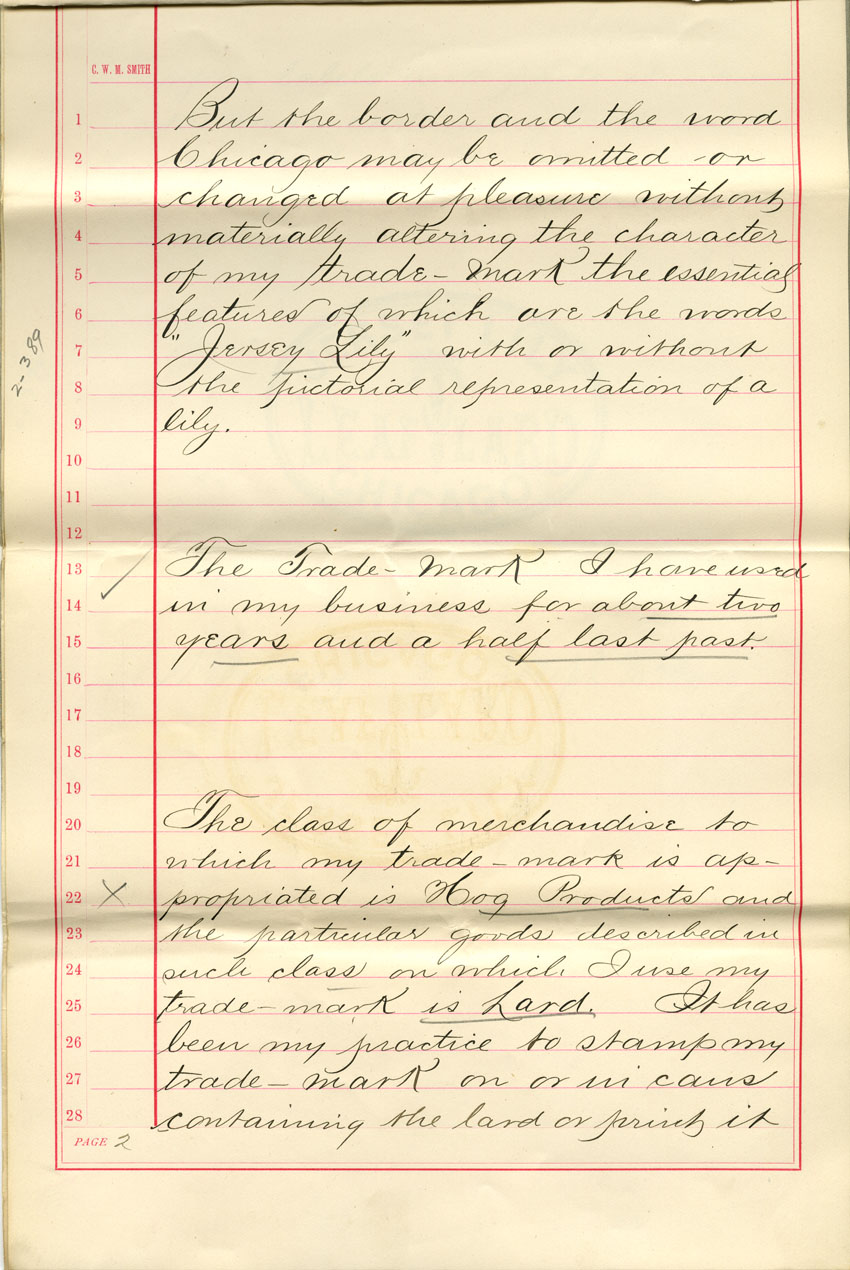 C. W. M. SMITH
1 But the border and the word
2 Chicago may be omitted or
3 changed at pleasure without
4 materially altering the character
5 of my trade-mark the essential
6 features of which are the words
7 "Jersey Lily" with or without
8 the pictorial representation of a
9 lily.
10
11
12
13 The Trade-Mark I have used
14 in my business for about two
15 years and a half last past.
16
17
18
19
20 The class of merchandise to
21 which my trade-mark is ap-
22 propriated is Hog Products and
23 the particular goods described in
24 such class on which I use my
25 trade-mark is Lard. It has
26 been my practice to stamp my
27 trade-mark on or in cans
28 containing the lard or print it
PAGE 2
2-3 89